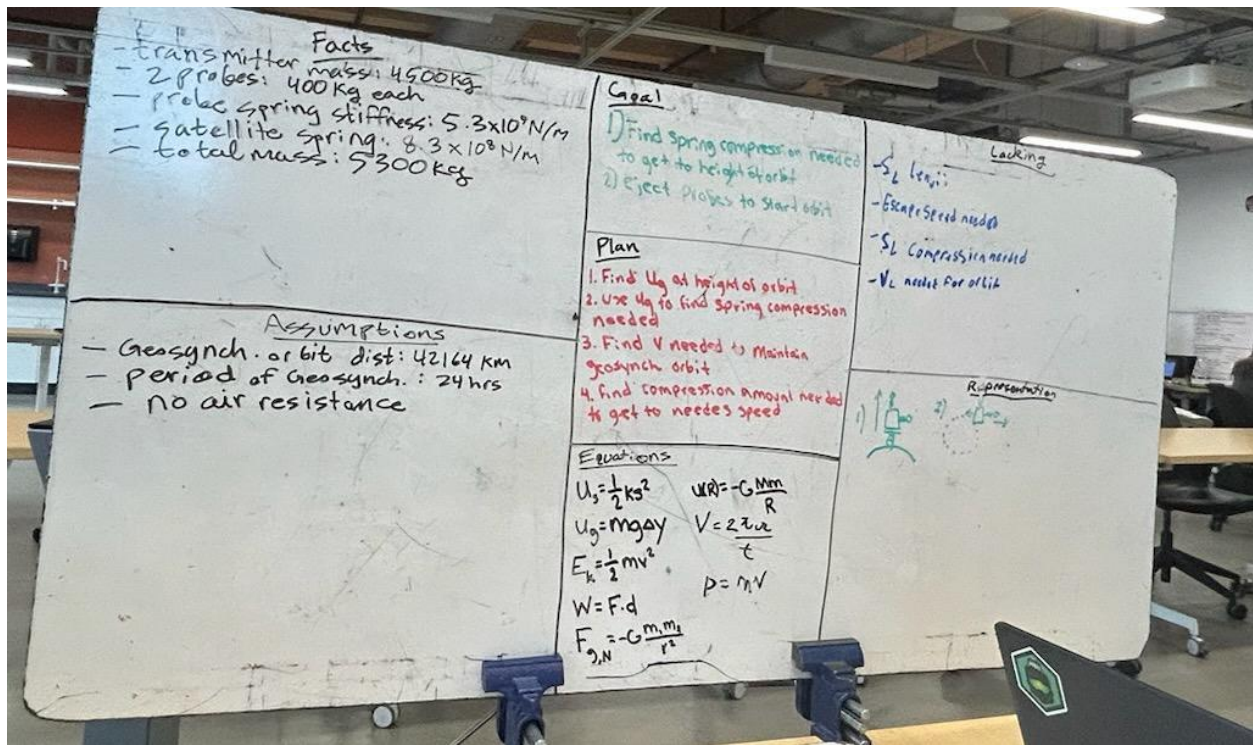 Facts
- transmitter mass: 4500kg
- 2 probes: 400 kg each
- probe spring stiffness: 5.3x10⁹N/m
- satellite spring: 8.3x10⁸N/m
- total mass: 5300kg
Assumptions
- Geosynch. orbit dist: 42164 km
- period of Geosynch. : 24hrs
- no air resistance
Goal
1) Find spring compression needed
to get to height of orbit
2) eject probes to start orbit
Plan
1. Find Ug at height of orbit
2. use Ug to find spring compression
needed
3. Find V needed to maintain
geosynch orbit
4. find compression amount needed
to get to needes speed
Equations
Us=½ks²
Ug=mgΔy
Ek=½mv²
W=F·d
Fg,N=-G m₁m₂/r²
U(R)=-G Mm/R
V=2πr/t
p=mv
Lacking
-SL
-Escape Speed needed
-SL Compression needed
-VL needed for orbit
Representation
1)
2)